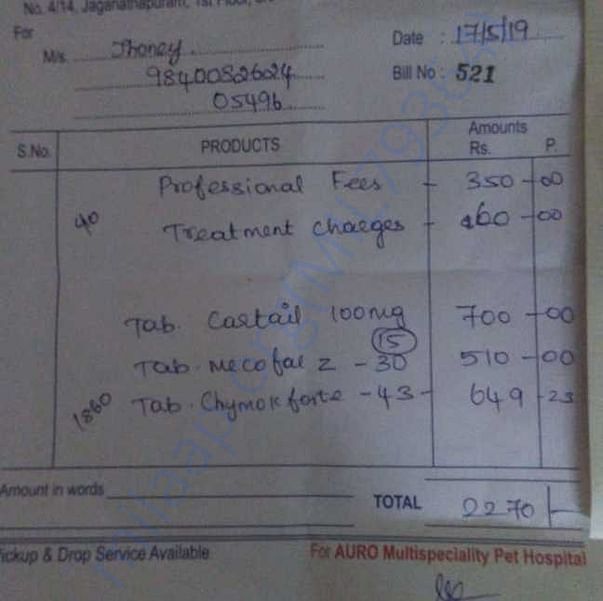 No. 4/14, Jaganathapuram, 1st Floor,
For
M/s. Jhoney
Date : 17/5/19
98400826024
Bill No : 521
05496
S.No. PRODUCTS Amounts
Rs. P.
Professional Fees - 350 - 00
40 Treatment Charges - 60 - 00
Tab. Cartail 100mg 700 - 00
15
Tab. Mecofal 2 - 30 510 - 00
1860 Tab. Chymok forte - 43 - 649 - 23
Amount in words
TOTAL 2270/-
ickup & Drop Service Available For AURO Multispeciality Pet Hospital